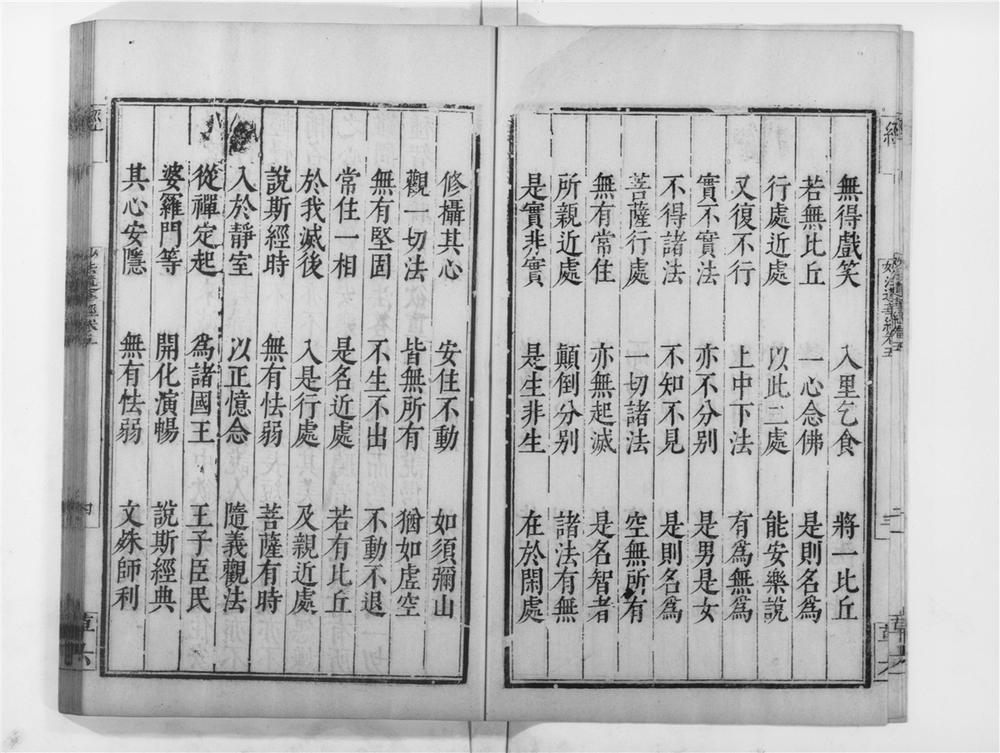 無得戲笑　入里乞食　將一比丘
若無比丘　一心念佛　是則名為
行處近處　以此二處　能安樂說
又復不行　上中下法　有為無為
實不實法　亦不分別　是男是女
不得諸法　不知不見　是則名為
菩薩行處　一切諸法　空無所有
無有常住　亦無起滅　是名智者
所親近處　顛倒分別　諸法有無
是實非實　是生非生　在於閑處
修攝其心　安住不動　如須彌山
觀一切法　皆無所有　猶如虛空
無有堅固　不生不出　不動不退
常住一相　是名近處　若有比丘
於我滅後　入是行處　及親近處
說斯經時　無有怯弱　菩薩有時
入於靜室　以正憶念　隨義觀法
從禪定起　為諸國王　王子臣民
婆羅門等　開化演暢　說斯經典
其心安隱　無有怯弱　文殊師利
經
妙法蓮華經卷五
四
章六